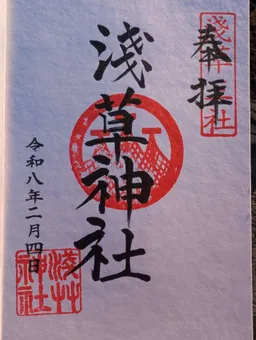 奉拝
淺草神社
淺草神社
令和八年二月四日
淺草神社